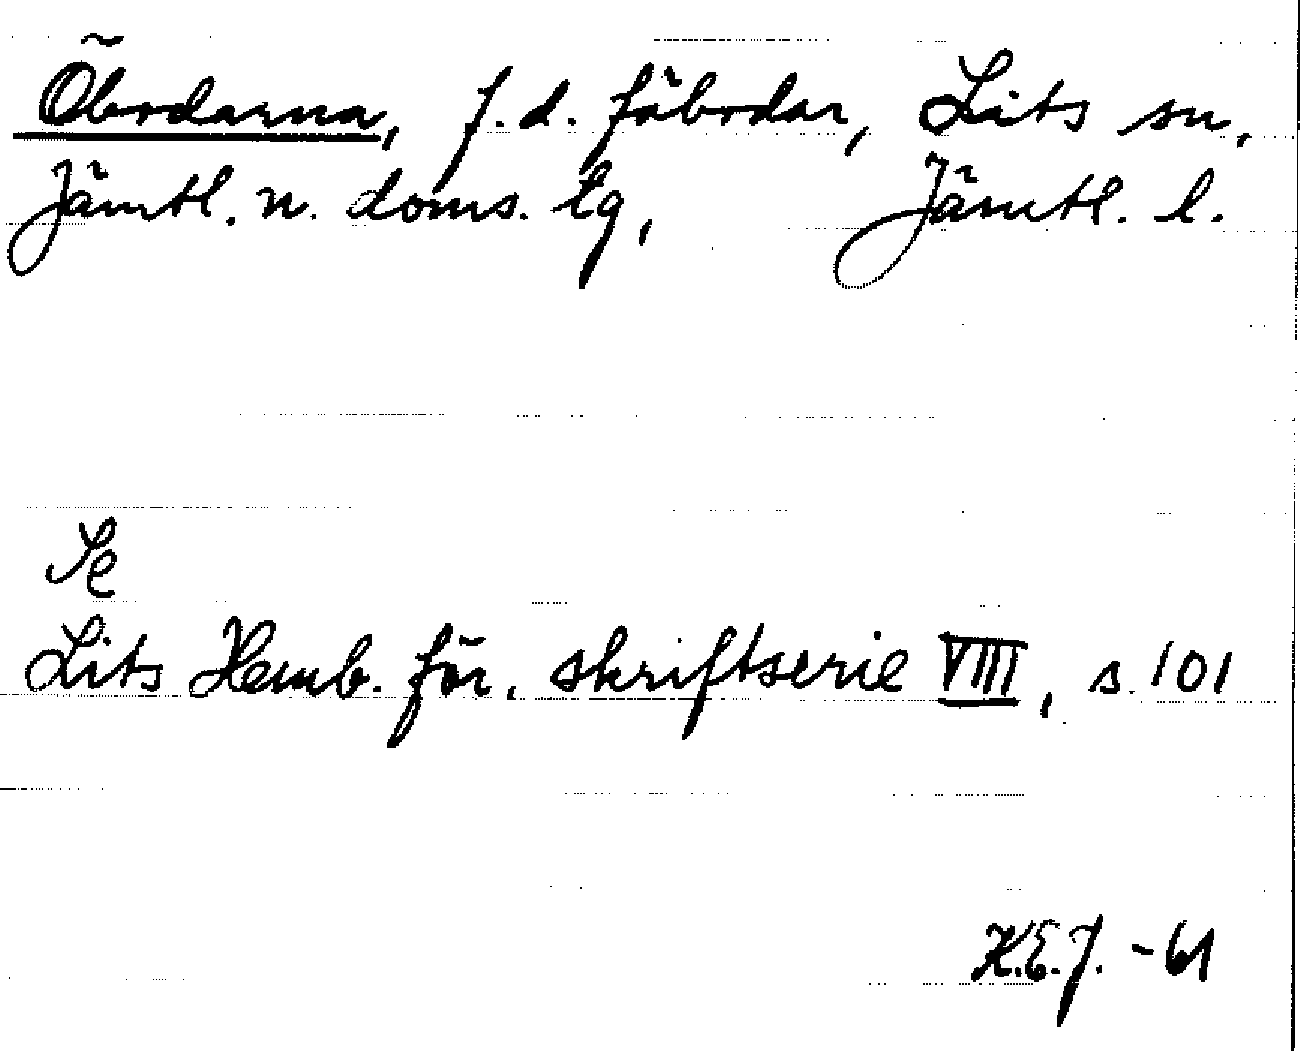 Öbodarna, f.d. fäbodar, Lits sn,
Jämtl. n. doms. tg, Jämtl. l.
Se
Lits Hemb. för. skriftserie VIII, s. 101
K.E.J. -61